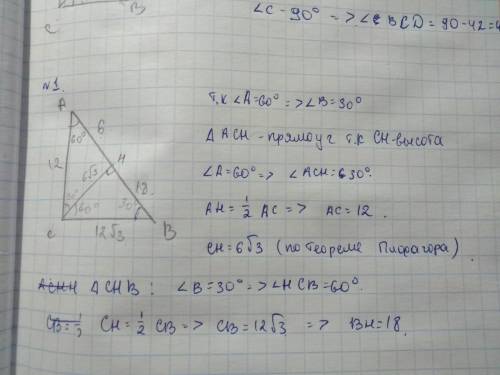 B
C
∠C-90° => ∠CBCD=90-42=4
№1.
A
60°
6
12
6√3
H
18.
30°
30°
60°
C
12√3
B
т.к ∠A=60° => ∠B=30°
△ACH-прямоуг т.к CH-высота
∠A=60° => ∠ACH=630°.
AH=½ AC => AC=12.
CH=6√3 (по теореме Пифагора).
△CHB: ∠B=30° => ∠HCB=60°.
CH=½ CB => CB=12√3 => BH=18.